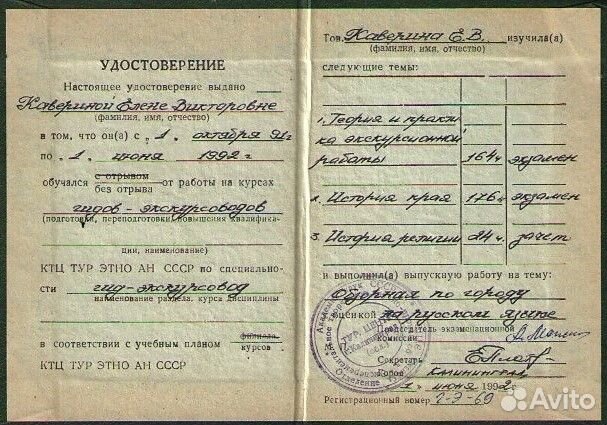 УДОСТОВЕРЕНИЕ
Настоящее удостоверение выдано
Кавериной Елене Викторовне
(фамилия, имя, отчество)
в том, что он(а) с „1. октября 91г
по „1. июня 1992г
с отрывом
обучался от работы на курсах
без отрыва
гидов-экскурсоводов
(подготовки, переподготовки, повышения квалифика-
ции, наименование)
КТЦ ТУР ЭТНО АН СССР по специально-
сти гид-экскурсовод
наименование раздела, курса дисциплины
филиала
в соответствии с учебным планом
курсов
КТЦ ТУР ЭТНО АН СССР
Тов. Каверина Е.В. изучила(а)
(фамилия, имя, отчество)
следующие темы:
1. Теория и практи
ка экскурсионной
работы 164ч экзамен
2. История края 176ч экзамен
3. История религии 24ч зачет
и выполнил(а) выпускную работу на тему:
Обзорная по городу
оценкой на русском языке
Председатель экзаменационной
комиссии
Секретарь
Город Калининград
„1" июня 1992г.
Регистрационный номер 2-Э-69
Avito